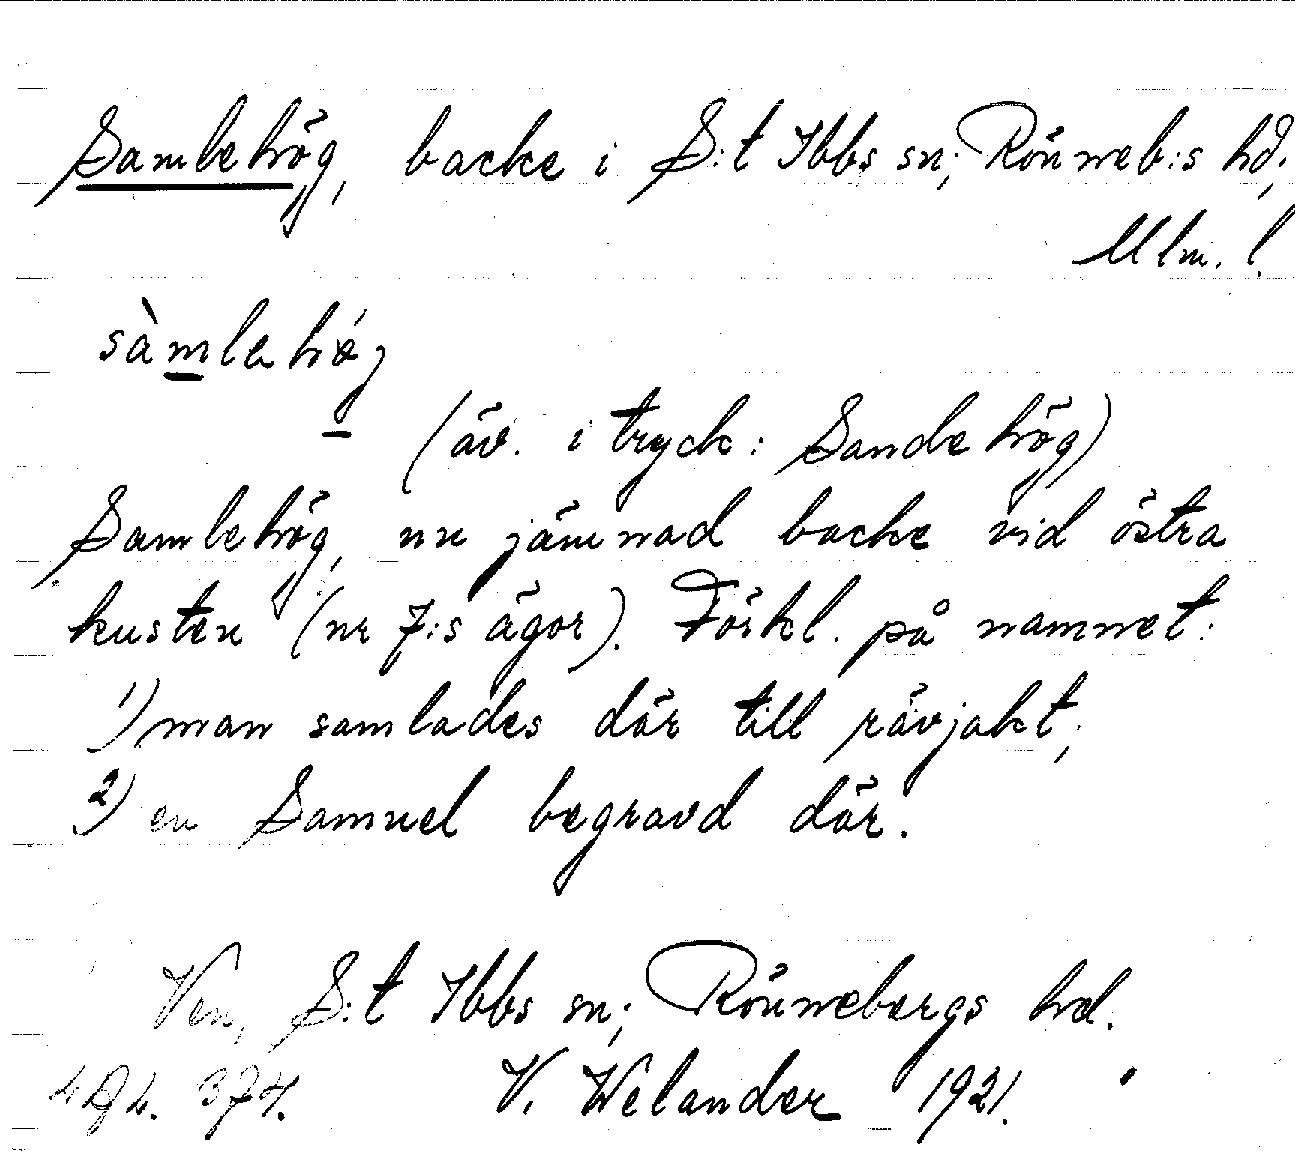 Sambehög, backe i S:t Ibbs sn; Rönneb:s hd;
Mlm. l.
sàmlehøg
(äv. i tryck: Sandehög)
Sambehög, nu jämnad backe vid östra
kusten (nr 7:s ägor). Förkl. på namnet:
1) man samlades där till rävjakt;
2) en Samuel begravd där.
Ven, S:t Ibbs sn; Rönnebergs hd.
374. V. Welander 1921.